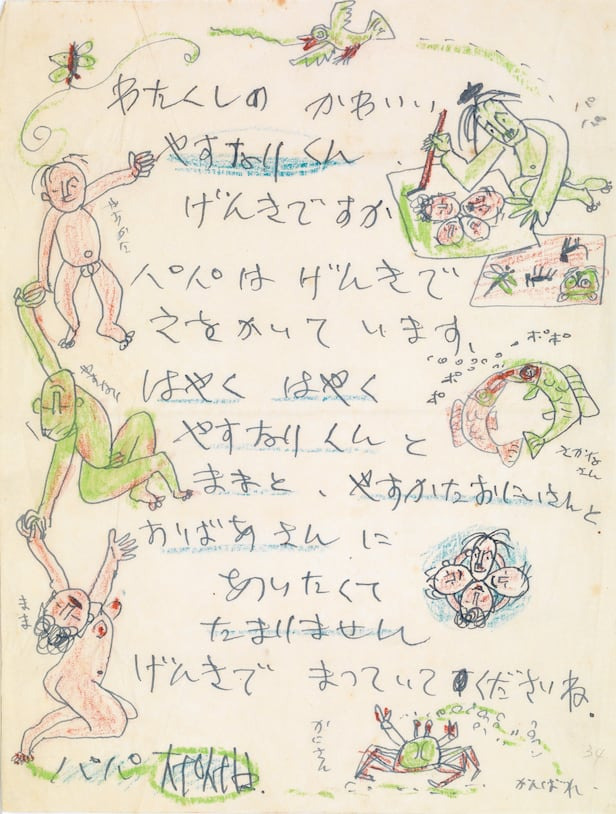 わたくしの かわいい
やすなりくん
げんきですか
パパは げんきで
えをかいて います、
はやく はやく
やすなりくんと
ままと、やすかたおにいさんと.
おばあさんに
あいたくて
たまりません
げんきで まっていて くださいね.
パパ
やすかた
まま
ポポ
ポ
ポ
さかな
さん
かにさん
がんばれ.
34